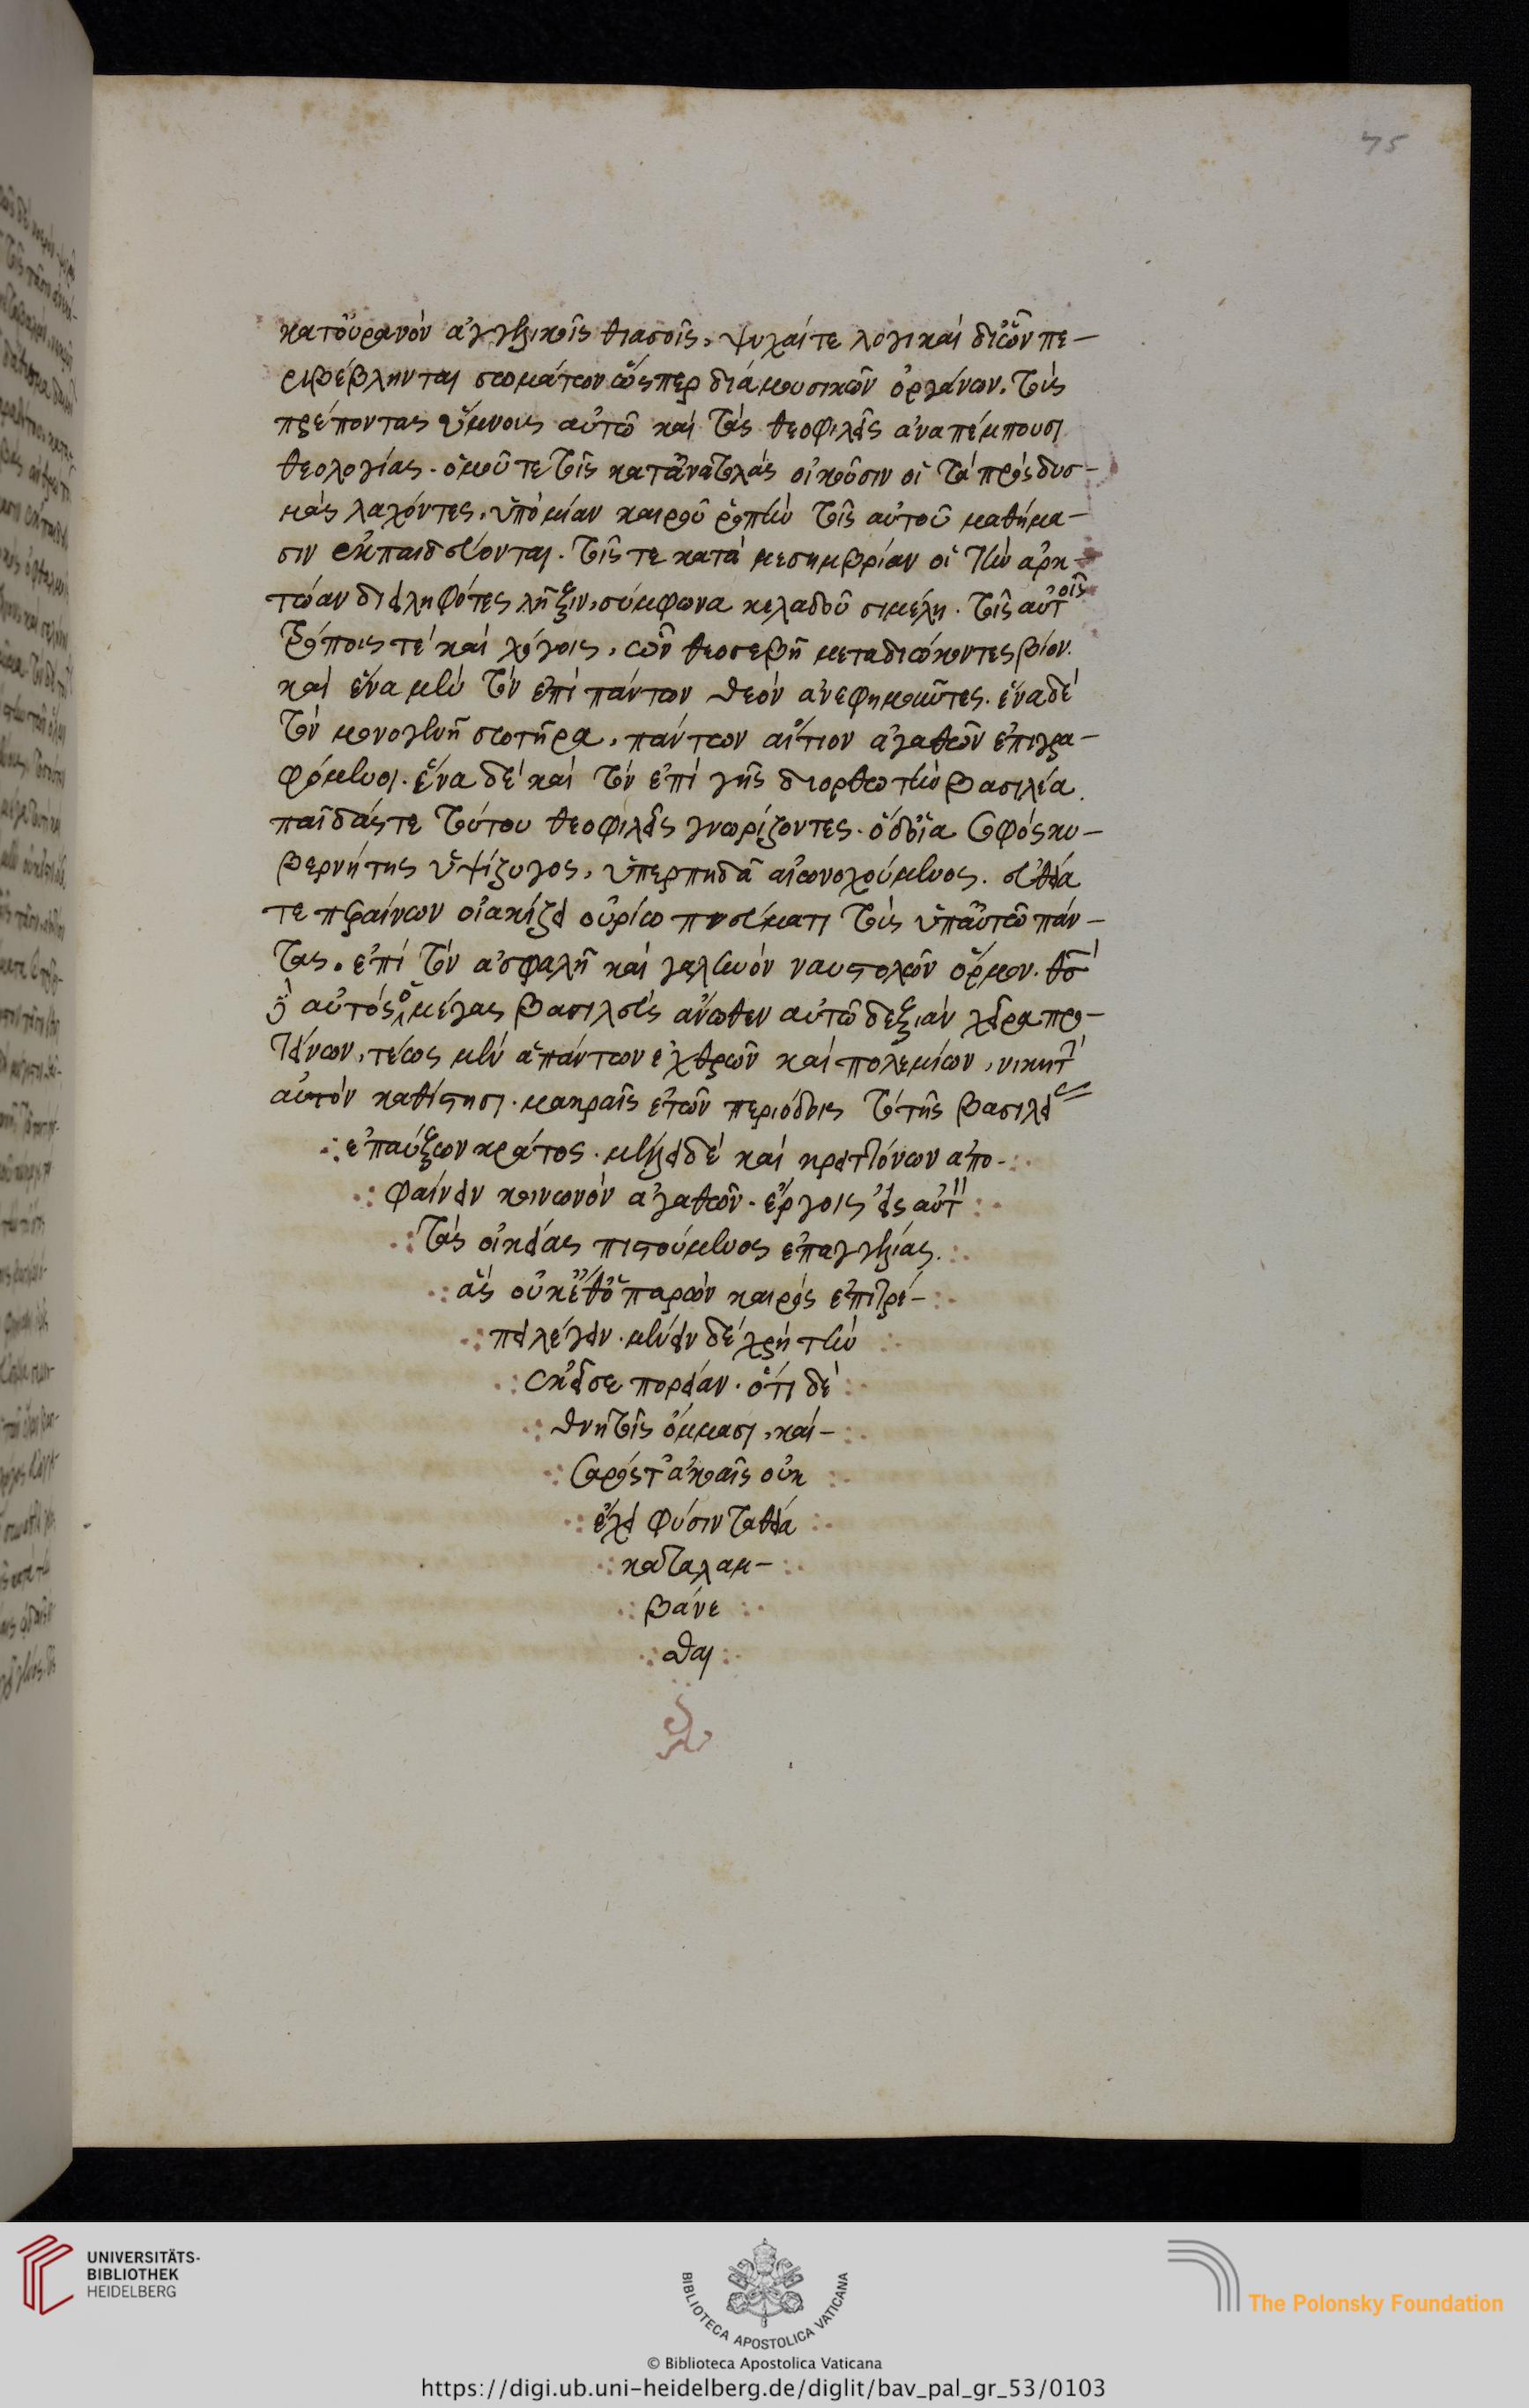 75
κατ' οὐρανὸν ἀγγελικοῖς θιάσοις, ψυχαί τε λογικαὶ δι' ὧν πε-
ριβέβληνται σωμάτων ὥσπερ διὰ μουσικῶν ὀργάνων, τοὺς
πρέποντας ὕμνους αὐτῶ καὶ τὰς θεοφιλεῖς ἀναπέμπουσι
θεολογίας. ὁμοῦ τε τοῖς κατ' ἀνατολὰς οἰκοῦσιν οἱ τὰ πρὸς δυσ-
μὰς λαχόντες, ὑπὸ μίαν καιροῦ ῥοπὴν τοῖς αὐτοῦ μαθήμα-
σιν ἐκπαιδεύονται. τοῖς τε κατὰ μεσημβρίαν οἱ τὴν ἀρκ-
τώαν διειληφότες λῆξιν, σύμφωνα κελαδοῦσι μέλη. τοῖς αὐτοῖς
τρόποις τὲ καὶ λόγοις, ὧν θεοσεβῆ μεταδιώκοντες βίον.
καὶ ἕνα μὲν τὸν ἐπὶ πάντων θεὸν ἀνευφημοῦντες. ἕνα δὲ
τὸν μονογενῆ σωτῆρα, πάντων αἴτιον ἀγαθῶν ἐπιγρα-
φόμενοι. ἕνα δὲ καὶ τὸν ἐπὶ γῆς διορθωτὴν βασιλέα.
παῖδάς τε τούτου θεοφιλεῖς γνωρίζοντες. ὁ δ' οἷα σοφὸς κυ-
βερνήτης ὑψίζυγος, ὑπερπηδᾶ αἰωνοχούμενος. εὐθεία
τε περαίνων οἰακίζει οὐρίω πνεύματι τοὺς ὑπ' αὐτῶ πάν-
τας. ἐπὶ τὸν ἀσφαλῆ καὶ γαληνὸν ναυστολῶν ὅρμον. θεὸσ
δ' αὐτὸς ὁ μέγας βασιλεὺς ἄνωθεν αὐτῶ δεξιὰν χεῖρα προ-
τείνων, τέως μὲν ἁπάντων ἐχθρῶν καὶ πολεμίων, νικητὴν
αὐτὸν καθίστησι. μακραῖς ἐτῶν περιόδοις τὸ τῆς βασιλείας
ἐπαύξων κράτος. μέλλει δὲ καὶ κρειττόνων ἀπο-
φαίνειν κοινωνὸν ἀγαθῶν. ἔργοις εἰς αὐτὸν
τὰς οἰκείας πιστούμενος ἐπαγγελίας.
ἃς οὐκέθ' ὁ παρὼν καιρὸς ἐπιτρέ-
πει λέγειν. μένειν δὲ χρὴ τὴν
ἐκεῖσε πορείαν. ὅτι δὲ
θνητοῖς ὄμμασι, καὶ
σαρός τ' ἀκοαῖς οὐκ
ἔχει φύσιν τὰ θεῖα
καταλαμ-
βάνε
σθαι
UNIVERSITÄTS-
BIBLIOTHEK
HEIDELBERG
BIBLIOTECA APOSTOLICA VATICANA
The Polonsky Foundation
© Biblioteca Apostolica Vaticana
https://digi.ub.uni-heidelberg.de/diglit/bav_pal_gr_53/0103